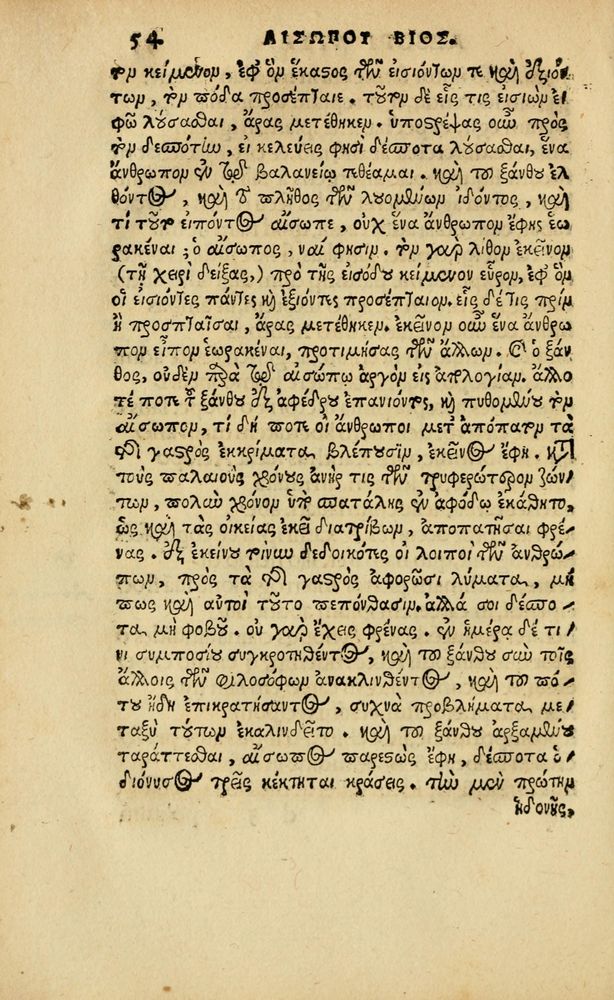 54 ΑΙΣΩΠΟΥ ΒΙΟΣ.
τὸν κείμενον, ἐφ᾽ ὃν ἕκαστος τῶν εἰσιόντων τε καὶ ἐξιόν-
των, τὸν πόδα προσέπταιε. τοῦτον δὲ εἷς τις εἰσιὼν εἰ
φῶ λούσασθαι, ἄρας μετέθηκεν. ὑποστρέψας οὖν πρὸς
τὸν δεσπότην, εἰ κελεύεις φησὶ δέσποτα λούσασθαι, ἕνα
ἄνθρωπον ἐν τῷ βαλανείῳ τεθέαμαι. καὶ τοῦ ξάνθου ἐλ
θόντος, καὶ τὸ πλῆθος τῶν λουομένων ἰδόντος, καὶ
τί τοῦτο εἰπόντος αἴσωπε, οὐχ ἕνα ἄνθρωπον ἔφης ἑω
ρακέναι; ὁ αἴσωπος, ναί φησιν. τὸν γὰρ λίθον ἐκεῖνον
(τῇ χειρὶ δείξας,) πρὸ τῆς εἰσόδου κείμενον εὗρον, ἐφ᾽ ὃν
οἱ εἰσιόντες πάντες κὴ ἐξιόντες προσέπταιον. εἷς δέ τις πρὶν
ἢ προσπταῖσαι, ἄρας μετέθηκεν. ἐκεῖνον οὖν ἕνα ἄνθρω
πον εἶπον ἑωρακέναι, προτιμήσας τῶν ἄλλων. καὶ ὁ ξάν
θος, οὐδὲν παρὰ τῷ αἰσώπῳ ἀργὸν εἰς ἀπολογίαν. ἄλλο
τέ ποτε τοῦ ξάνθου ἐξ ἀφέδρου ἐπανιόντος, κὴ πυθομένου τὸν
αἴσωπον, τί δή ποτε οἱ ἄνθρωποι μετ᾽ ἀπόπατον τὰ
τῆς γαστρὸς ἐκκρίματα βλέπουσιν, ἐκεῖνος ἔφη. κατὰ
τοὺς παλαιοὺς χρόνους ἀνήρ τις τῶν τρυφερώτερον ζών
των, πολὺν χρόνον ὑπὸ σπατάλης ἐν ἀφόδῳ ἐκάθητο,
ὡς καὶ τὰς οἰκείας ἐκεῖ διατρίβων, ἀποπατῆσαι φρέ-
νας. ἐξ ἐκείνου τοίνυν δεδοικότες οἱ λοιποὶ τῶν ἀνθρώ-
πων, πρὸς τὰ τῆς γαστρὸς ἀφορῶσι λύματα, μή
πως καὶ αὐτοὶ τοῦτο πεπόνθασιν. ἀλλά σοι δέσπο-
τα, μὴ φοβοῦ. οὐ γὰρ ἔχεις φρένας. ἐν ἡμέρᾳ δέ τι-
νι συμποσίου συγκροτηθέντος, καὶ τοῦ ξάνθου σὺν τοῖς
ἄλλοις τῶν φιλοσόφων ἀνακλινθέντος, καὶ τοῦ πό-
του ἤδη ἐπικρατήσαντος, συχνὰ προβλήματα με-
ταξὺ τούτων ἐκαλινδεῖτο. καὶ τοῦ ξάνθου ἀρξαμένου
ταράττεσθαι, αἴσωπος παρεστὼς ἔφη, δέσποτα ὁ
διόνυσος τρεῖς κέκτηται κράσεις. τὴν μὲν πρώτην
ἡδονῆς,